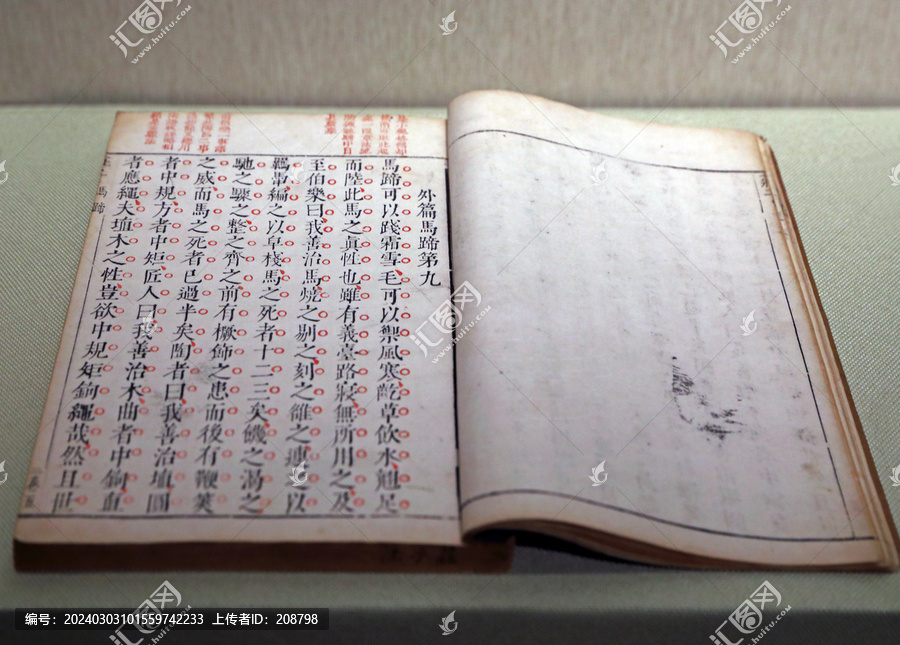 外篇馬蹄第九
馬蹄可以踐霜雪毛可以禦風寒齕草飲水翹足
而陸此馬之眞性也雖有義臺路寢無所用之及
至伯樂曰我善治馬燒之剔之刻之雒之連之以
羈馽編之以皁棧馬之死者十二三矣饑之渴之
馳之驟之整之齊之前有橛飾之患而後有鞭筴
之威而馬之死者已過半矣陶者曰我善治埴圓
者中規方者中矩匠人曰我善治木曲者中鉤直
者應繩夫埴木之性豈欲中規矩鉤繩哉然且世
馬蹄
汇图网
www.huitu.com
编号：20240303101559742233 上传者ID：208798